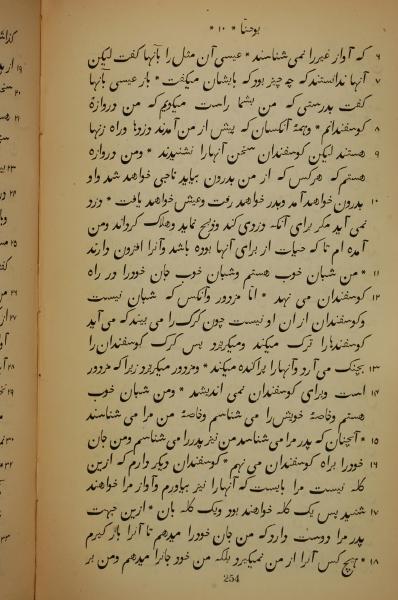 یوحنا * ۱۰ *
۶ که آواز غیر را نمی شناسند * عیسی آن مثل را بآنها گفت لیکن
۷ آنها ندانستند که چه چیز بود که بایشان میگفت * باز عیسی بآنها
گفت بدرستی که من بشما راست میگویم که من دروازهٔ
۸ کوسفندانم * وهمهٔ آنکسان که پیش از من آمدند دزدها وراه زنها
۹ هستند لیکن کوسفندان سخن آنهارا نشنیدند * ومن دروازه
هستم که هرکس که از من بدرون بیاید ناجی خواهد شد واو
۱۰ بدرون خواهد آمد وبدر خواهد رفت وعیش خواهد یافت * دزد
نمی آید مگر برای آنکه دزدی کند وذبح نماید وهلاک گرداند ومن
آمده ام تا که حیات از برای آنها بوده باشد وآنرا افزون دارند
۱۱ * من شبان خوب هستم وشبان خوب جان خودرا در راه
۱۲ کوسفندان می نهد * اما مزدور وآنکس که شبان نیست
وکوسفندان از ان او نیست چون کرک را می بیند که می آید
کوسفندهارا ترک میکند ومیکریزد پس کرک کوسفندان را
۱۳ بچنک می آرد وآنهارا پراکنده میکند * ومزدور میکریزد زیرا که مزدور
۱۴ است وبرای کوسفندان نمی اندیشد * ومن شبان خوب
هستم وخاصهٔ خویش را می شناسم وخاصهٔ من مرا می شناسند
۱۵ * آنچنان که پدر مرا می شناسد من نیز پدررا می شناسم ومن جان
۱۶ خودرا براه کوسفندان می نهم * کوسفندان دیکر دارم که ازین
کله نیست مرا بایست که آنهارا نیز بیاورم وآواز مرا خواهند
۱۷ شنید پس یک کله خواهند بود ویک کله بان * ازین جهت
پدر مرا دوست دارد که من جان خودرا میدهم تا آنرا باز کیرم
۱۸ * هیچ کس آنرا از من نمیکیرد بلکه من خود جانرا میدهم ومن بر
254